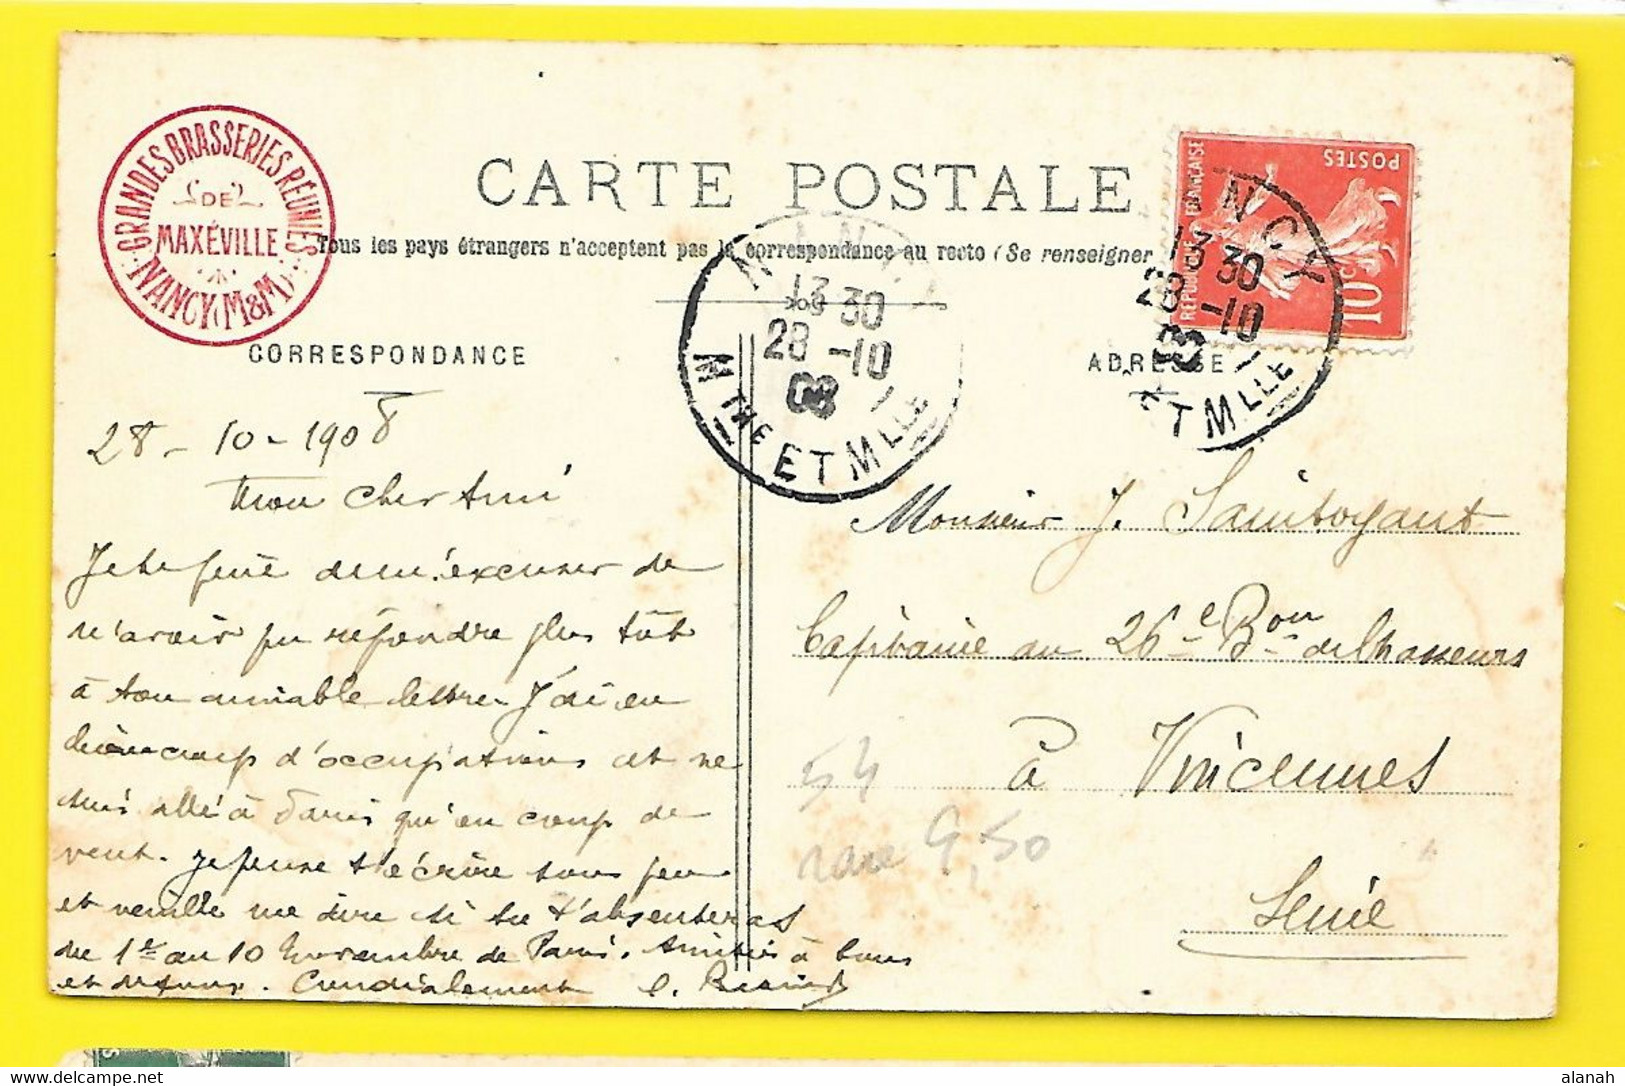 GRANDES BRASSERIES RÉUNIES
DE
MAXÉVILLE
NANCY (M&M)
CARTE POSTALE
Tous les pays étrangers n'acceptent pas la correspondance au recto (Se renseigner
CORRESPONDANCE
ADRESSE
RÉPUBLIQUE FRANÇAISE
POSTES
10c
NANCY
13 30
28 -10
08
MTHE ET MLLE
NCY
13 30
28 -10
08
ET MLLE
28 - 10 - 1908
Mon cher Ami
Je te prie de m'excuser de
n'avoir pu répondre plus tôt
à ton aimable lettre. J'ai eu
beaucoup d'occupations et ne
suis allé à Paris qu'en coup de
vent. Je pense t'écrire sous peu
et veuille me dire si tu t'absenteras
du 1er au 10 Novembre de Paris. Amitiés à tous
et de tous. Cordialement
Monsieur J. Saintoyant
Capitaine au 26e Bon de Chasseurs
à Vincennes
Seine
54
rare 9,50
alanah